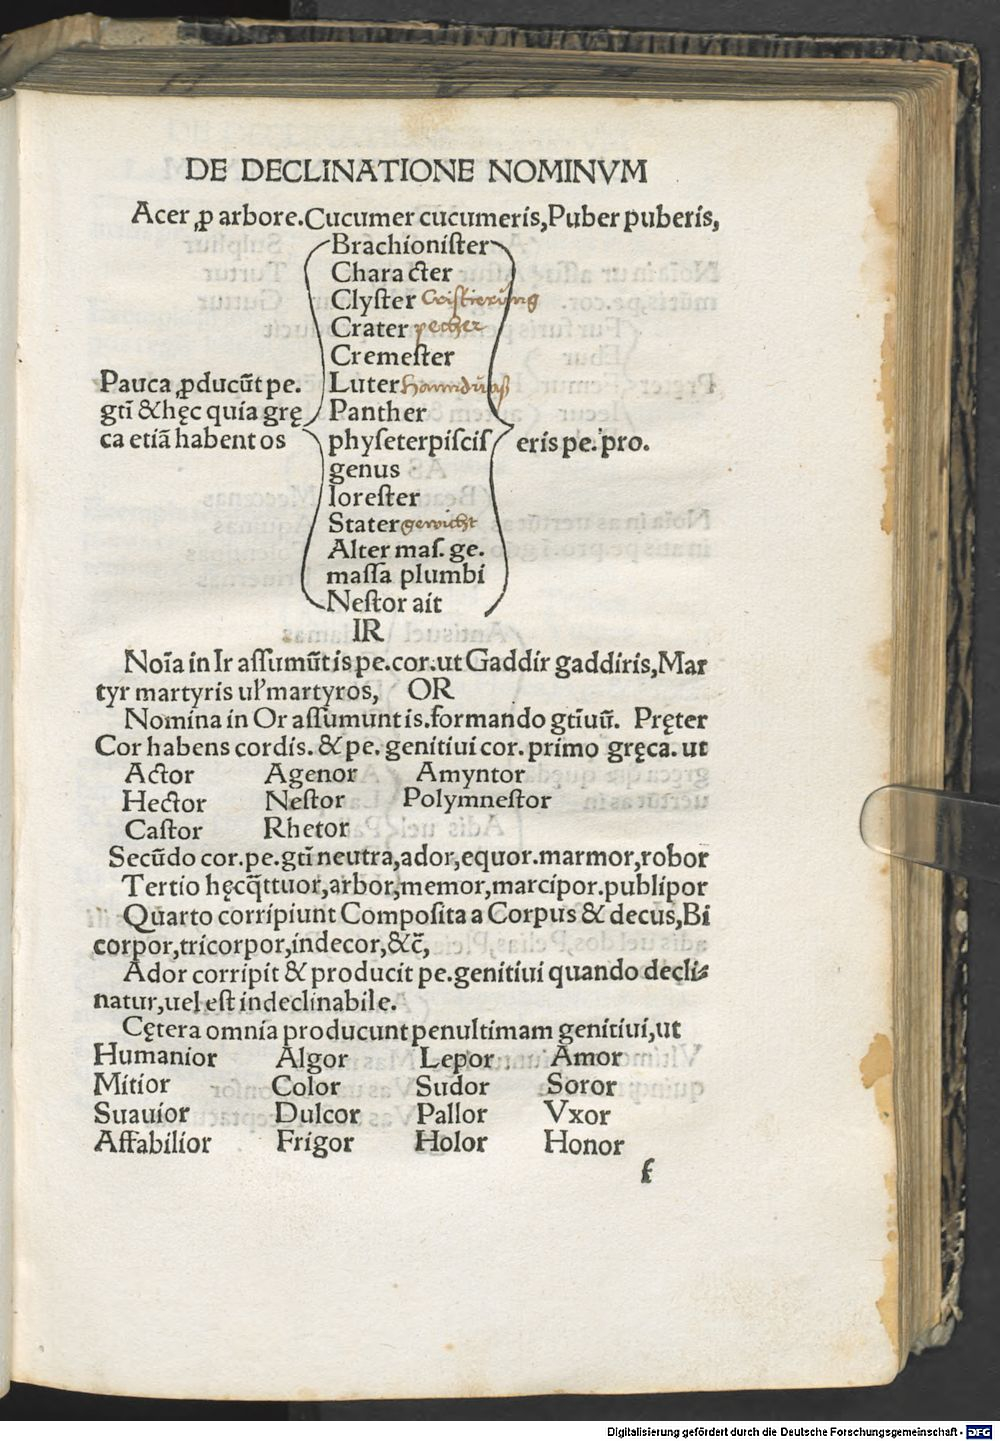 DE DECLINATIONE NOMINVM
Acer ꝓ arbore. Cucumer cucumeris, Puber puberis,
Brachionister
Character
Clyster Cristierung
Crater pecher
Cremester
Pauca ꝓducūt pe. Luter
gti̅ & hęc quia grę Panther
ca etiā habent os physeterpiscis eris pe. pro.
genus
lorester
Stater gewicht
Alter mas. ge.
massa plumbi
Nestor ait
IR
Noīa in Ir assumūt is pe. cor. ut Gaddir gaddiris, Mar
tyr martyris ul' martyros, OR
Nomina in Or assumunt is. formando gti̅uū. Pręter
Cor habens cordis. & pe. genitiui cor. primo gręca. ut
Actor Agenor Amyntor
Hector Nestor Polymnestor
Castor Rhetor
Secūdo cor. pe. gti̅ neutra, ador, equor. marmor, robor
Tertio hęc q̄ttuor, arbor, memor, marcipor. publipor
Quarto corripiunt Composita a Corpus & decus, Bi
corpor, tricorpor, indecor, &c̄,
Ador corripit & producit pe. genitiui quando decli⸗
natur, uel est indeclinabile.
Cętera omnia producunt penultimam genitiui, ut
Humanior Algor Lepor Amor
Mitior Color Sudor Soror
Suauior Dulcor Pallor Vxor
Affabilior Frigor Holor Honor
f
Digitalisierung gefördert durch die Deutsche Forschungsgemeinschaft - DFG